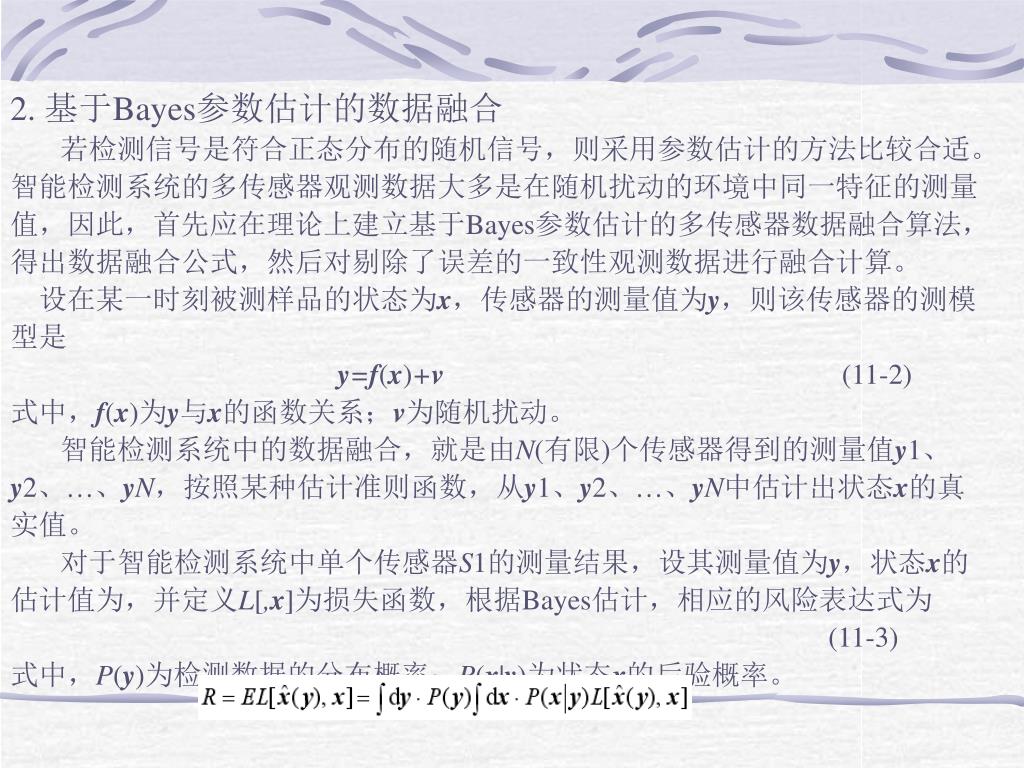 2. 基于Bayes参数估计的数据融合
若检测信号是符合正态分布的随机信号，则采用参数估计的方法比较合适。
智能检测系统的多传感器观测数据大多是在随机扰动的环境中同一特征的测量
值，因此，首先应在理论上建立基于Bayes参数估计的多传感器数据融合算法，
得出数据融合公式，然后对剔除了误差的一致性观测数据进行融合计算。
设在某一时刻被测样品的状态为x，传感器的测量值为y，则该传感器的测模
型是
y=f(x)+v (11-2)
式中，f(x)为y与x的函数关系；v为随机扰动。
智能检测系统中的数据融合，就是由N(有限)个传感器得到的测量值y1、
y2、…、yN，按照某种估计准则函数，从y1、y2、…、yN中估计出状态x的真
实值。
对于智能检测系统中单个传感器S1的测量结果，设其测量值为y，状态x的
估计值为，并定义L[,x]为损失函数，根据Bayes估计，相应的风险表达式为
(11-3)
式中，P(y)为检测数据的分布概率，P(x|y)为状态x的后验概率。
R = EL[x̂(y), x] = ∫dy · P(y)∫dx · P(x|y)L[x̂(y), x]